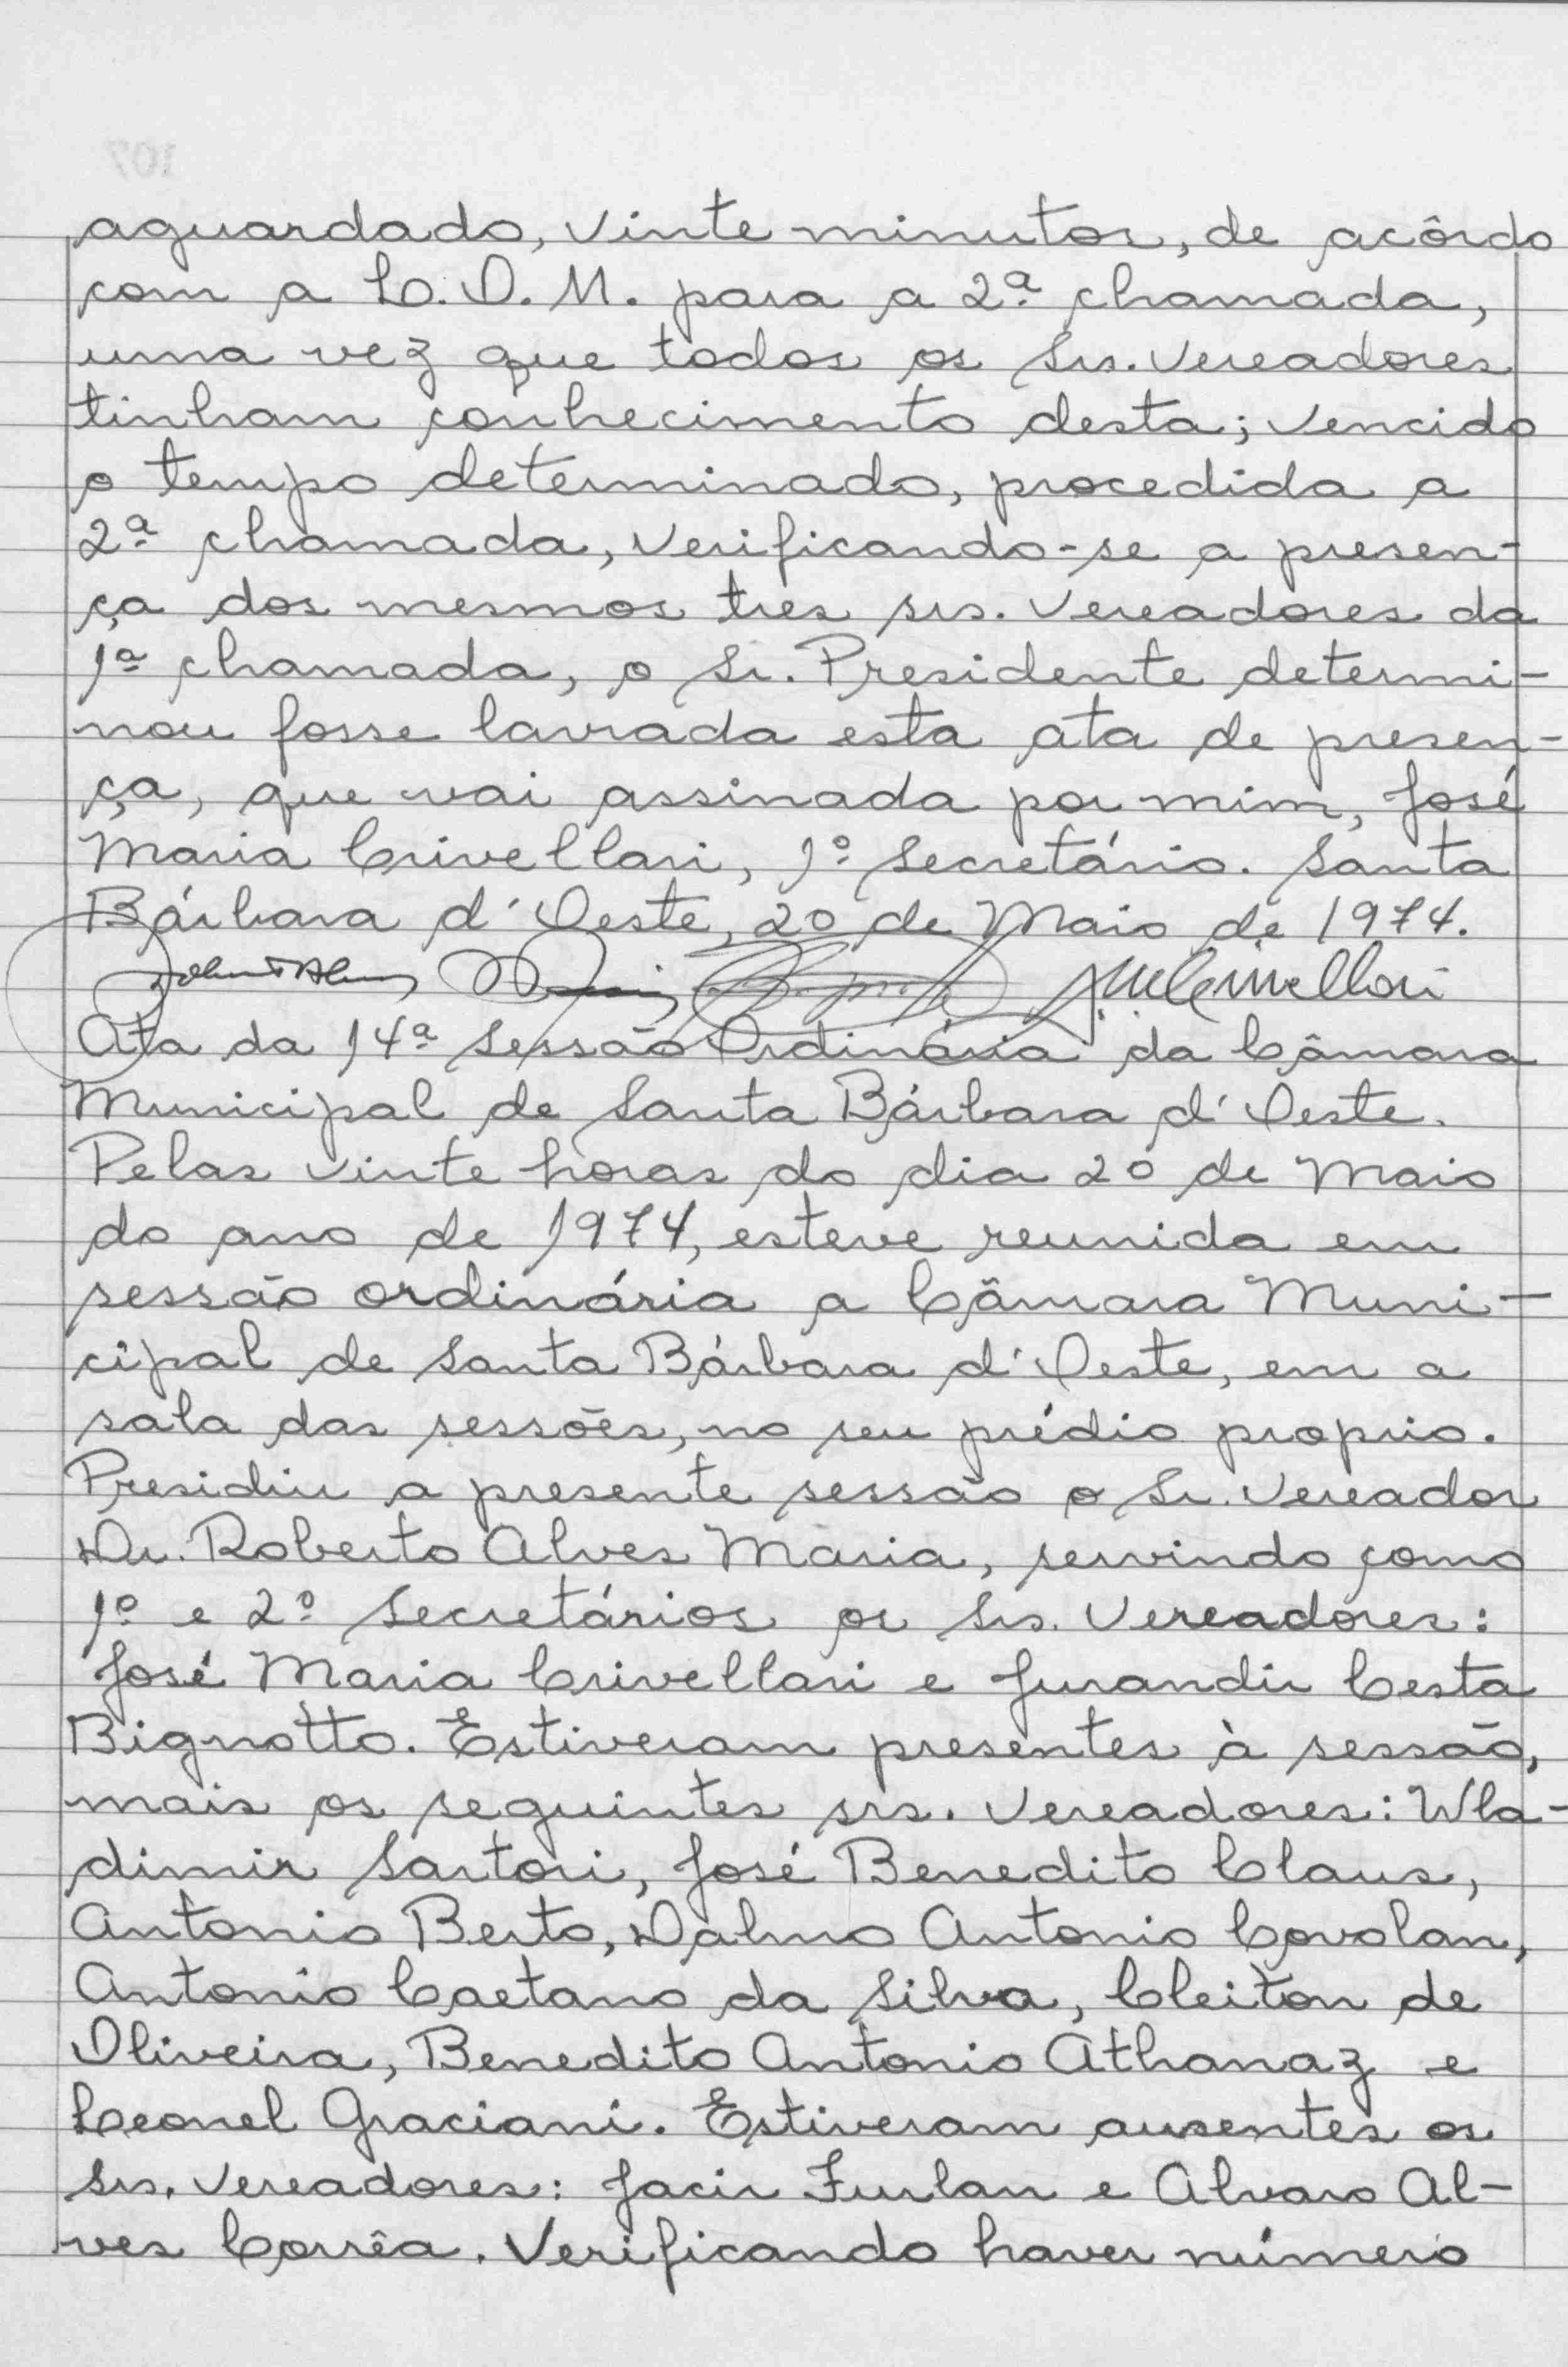 107
aguardado, vinte minutos, de acôrdo
com a L.O.M. para a 2ª chamada,
uma vez que todos os Srs. Vereadores
tinham conhecimento desta; vencido
o tempo determinado, procedida a
2ª chamada, verificando-se a presen-
ça dos mesmos tres srs. Vereadores da
1ª chamada, o Sr. Presidente determi-
nou fosse lavrada esta ata de presen-
ça, que vai assinada por mim, José
Maria Crivellari, 1º Secretário. Santa
Bárbara d'Oeste, 20 de Maio de 1974.
J.M.Crivellari
Ata da 14ª Sessão Ordinária da Câmara
Municipal de Santa Bárbara d'Oeste.
Pelas vinte horas do dia 20 de Maio
do ano de 1974, esteve reunida em
sessão ordinária a Câmara Muni-
cipal de Santa Bárbara d'Oeste, em a
sala das sessões, no seu prédio proprio.
Presidiu a presente sessão o Sr. Vereador
Dr. Roberto Alves Maria, servindo como
1º e 2º Secretários os Srs. Vereadores:
José Maria Crivellari e Jurandir Cesta
Bignotto. Estiveram presentes à sessão,
mais os seguintes srs. Vereadores: Wla-
dimir Sartori, José Benedito Claus,
Antonio Berto, Dalmo Antonio Covolan,
Antonio Caetano da Silva, Cleiton de
Oliveira, Benedito Antonio Athanaz e
Leonel Graciani. Estiveram ausentes os
Srs. Vereadores: Jacir Furlan e Alvaro Al-
ves Corrêa. Verificando haver número